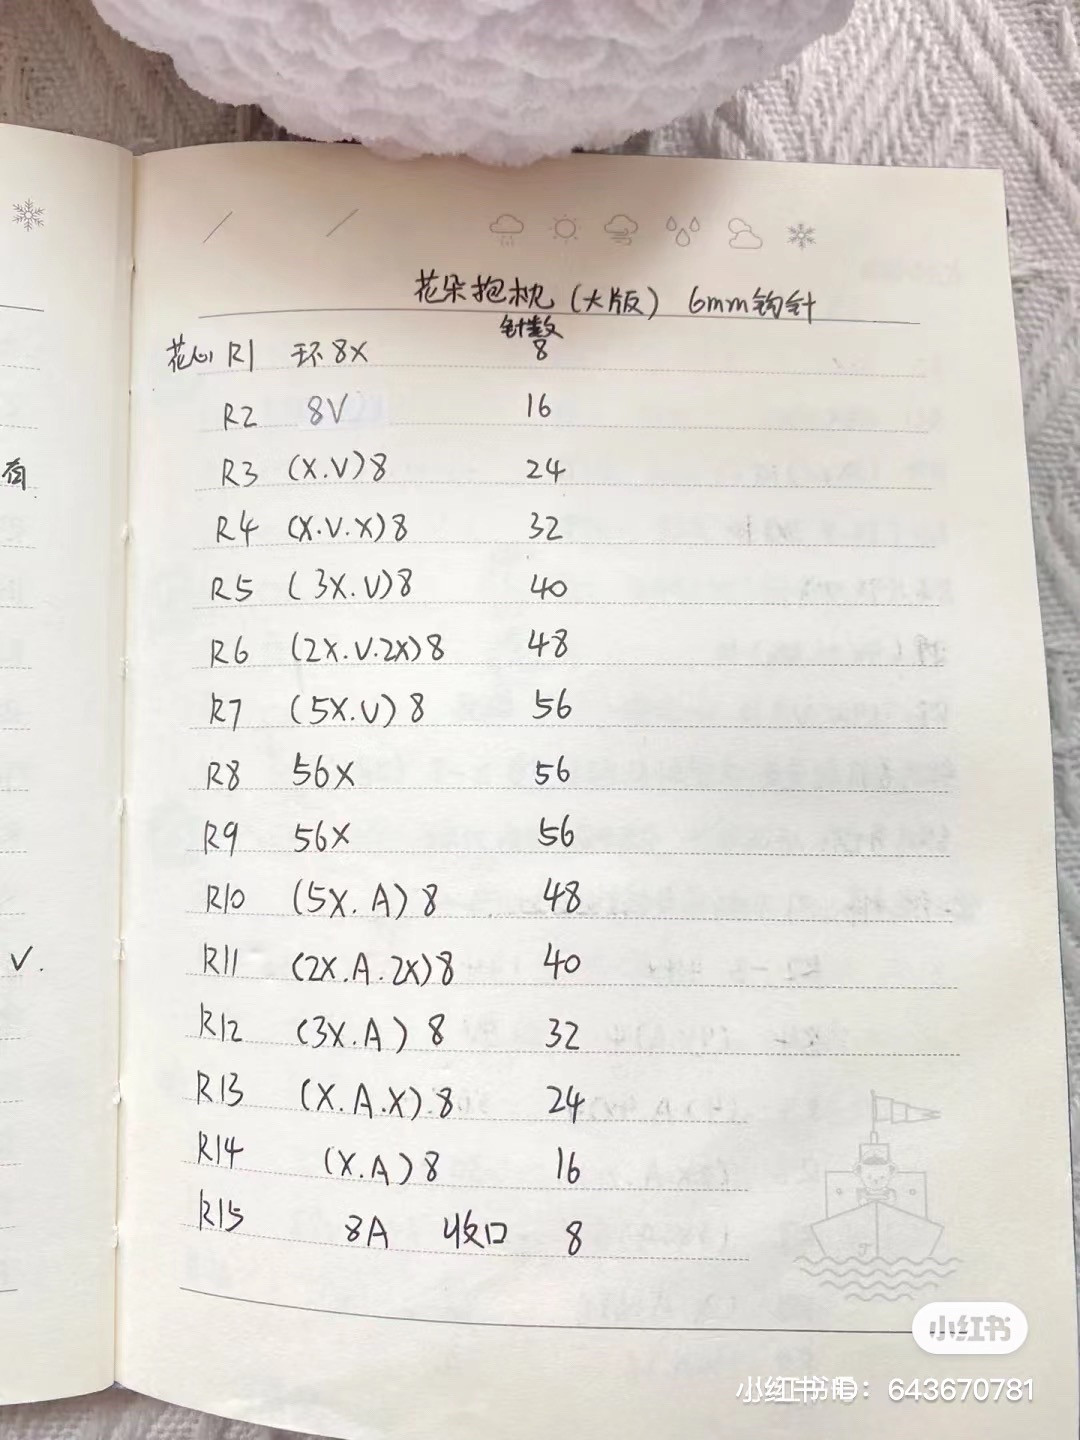 花朵抱枕(大版) 6mm钩针
针数
花心 R1 环8X 8
R2 8V 16
R3 (X.V)8 24
R4 (X.V.X)8 32
R5 (3X.V)8 40
R6 (2X.V.2X)8 48
R7 (5X.V)8 56
R8 56X 56
R9 56X 56
R10 (5X.A)8 48
R11 (2X.A.2X)8 40
R12 (3X.A)8 32
R13 (X.A.X)8 24
R14 (X.A)8 16
R15 8A 收口 8
有
V.
小红书
小红书号：643670781